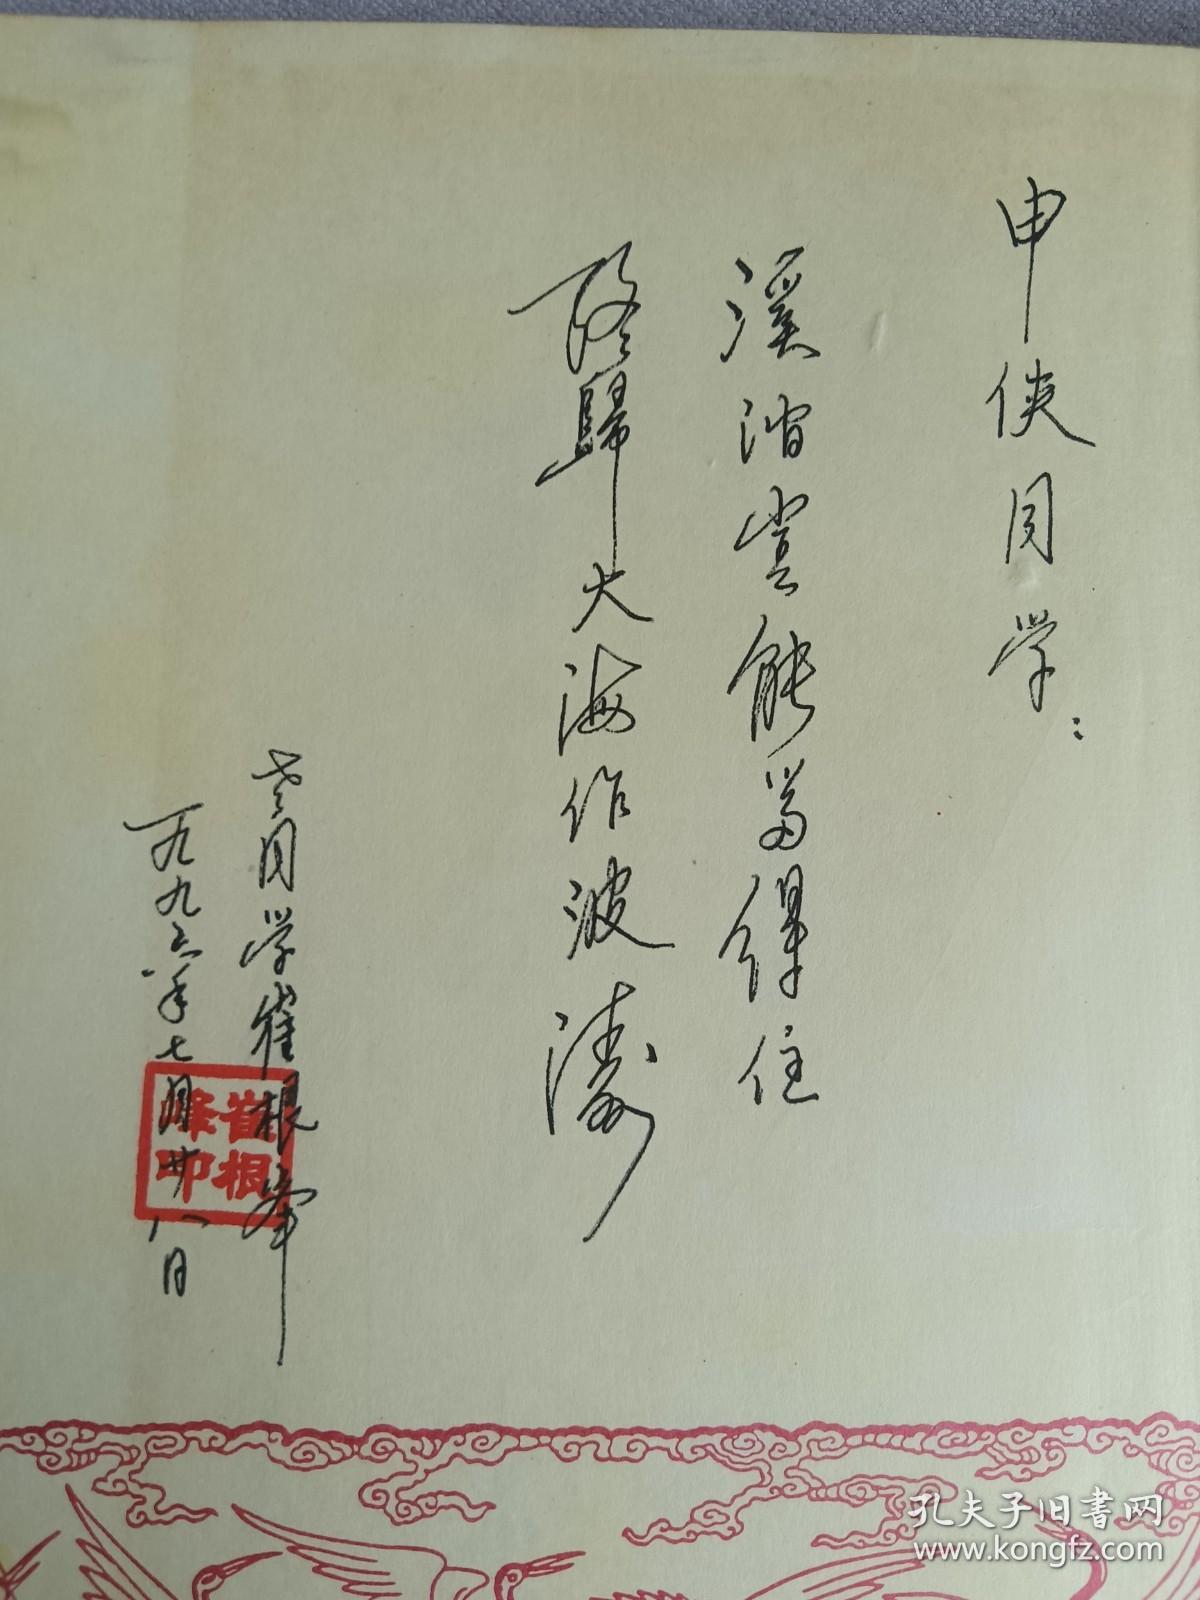 申侠同学：
溪涧豈能留得住
终歸大海作波濤
老同学崔根峯
一九九六年七月廿八日
崔根峯印
孔夫子旧书网
www.kongfz.com